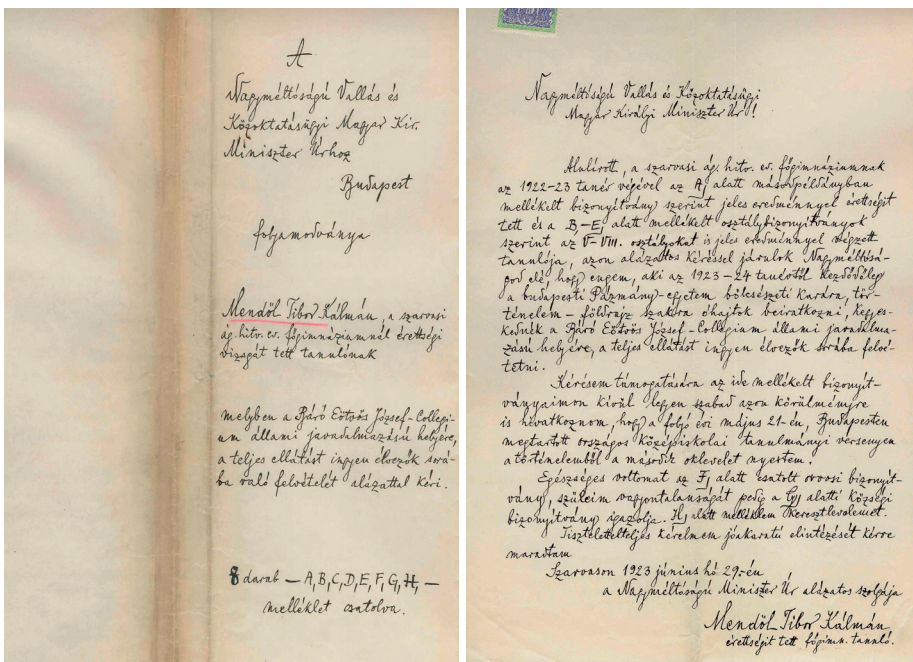 A
Nagyméltóságú Vallás és
Közoktatásügyi Magyar Kir.
Miniszter Úrhoz
Budapest
folyamodványa
Mendöl Tibor Kálmán, a szarvasi
ág. hitv. ev. főgimnáziumnál érettségi
vizsgát tett tanulónak
melyben a Báró Eötvös József-Collegi-
um állami javadalmazású helyére,
a teljes ellátást ingyen élvezők sorá-
ba való felvételét alázattal kéri.
8 darab – A, B, C, D, E, F, G, H, –
melléklet csatolva.
Nagyméltóságú Vallás és Közoktatásügyi
Magyar Királyi Miniszter Úr!
Alulírott, a szarvasi ág. hitv. ev. főgimnáziumnak
az 1922-23 tanév végével az A, alatt másodpéldányban
mellékelt bizonyítvány szerint jeles eredménnyel érettségit
tett és a B–E, alatt mellékelt osztálybizonyítványok
szerint az V–VIII. osztályokat is jeles eredménnyel végzett
tanulója, azon alázatos kéréssel járulok Nagyméltósá-
god elé, hogy engem, aki az 1923-24 tanévtől kezdődőleg
a budapesti Pázmány-egyetem bölcsészeti karára, tör-
ténelem-földrajz szakra óhajtok beiratkozni, kegyes-
kednék a Báró Eötvös József-Collegium állami javadalma-
zású helyére, a teljes ellátást ingyen élvezők sorába felvé-
tetni.
Kérésem támogatására az ide mellékelt bizonyít-
ványaimon kívül legyen szabad azon körülményre
is hivatkoznom, hogy a folyó évi május 21-én, Budapesten
megtartott országos középiskolai tanulmányi versenyen
a történelemből a második oklevelet nyertem.
Egészséges voltomat az F, alatt csatolt orvosi bizonyít-
vány, szüleim vagyontalanságát pedig a G, alatti községi
bizonyítvány igazolja. H, alatt mellékelem keresztlevelemet.
Tiszteletteljes kérelmem jóakaratú elintézését kérve
maradtam
Szarvason 1923 június hó 29.-én
a Nagyméltóságú Miniszter Úr alázatos szolgája
Mendöl Tibor Kálmán
érettségit tett főgimn. tanuló.